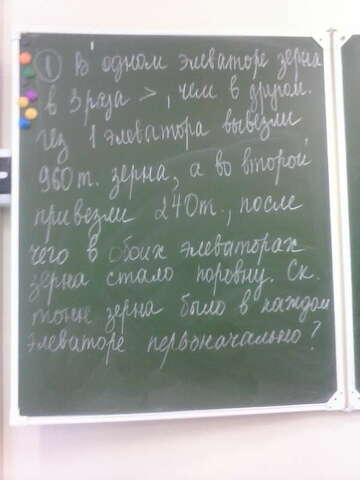 ① В одном элеваторе зерна
в 3 раза >, чем в другом.
Из 1 элеватора вывезли
960т. зерна, а во второй
привезли 240т., после
чего в обоих элеваторах
зерна стало поровну. Ск.
тонн зерна было в каждом
элеваторе первоначально?